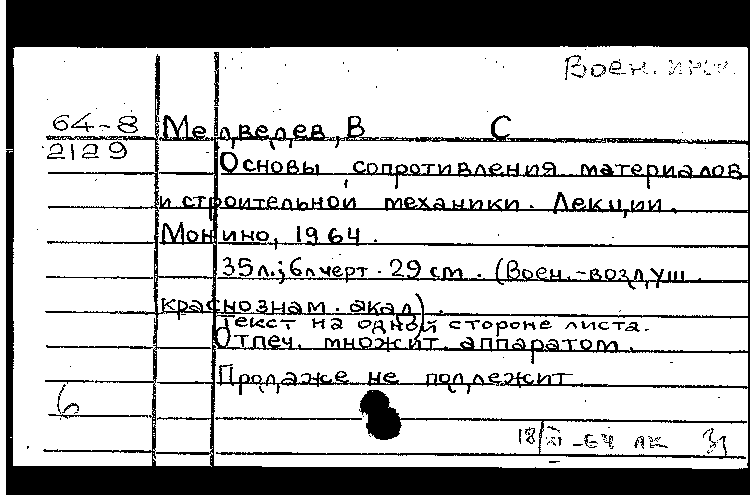 Воен.
64-8 Медведев, В С
2129
Основы сопротивления материалов
и строительной механики. Лекции.
Монино, 1964.
35л.; 6л черт. 29 см. (Воен.-воздуш.
краснознам. акад).
Текст на одной стороне листа.
Отпеч. множит. аппаратом.
Продаже не подлежит
6
18/XI-64 лк